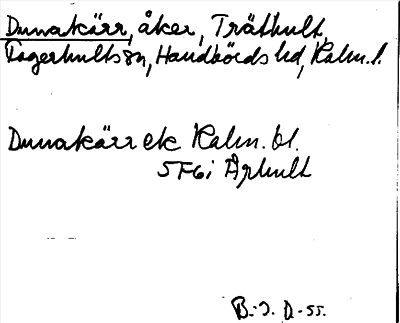 Dunakärr, åker, Träthult,
Fagerhults sn, Handbörds hd, Kalm. l.
Dunakärr ek Kalm. bl.
5F6i Århult
B.-J. D.-55.